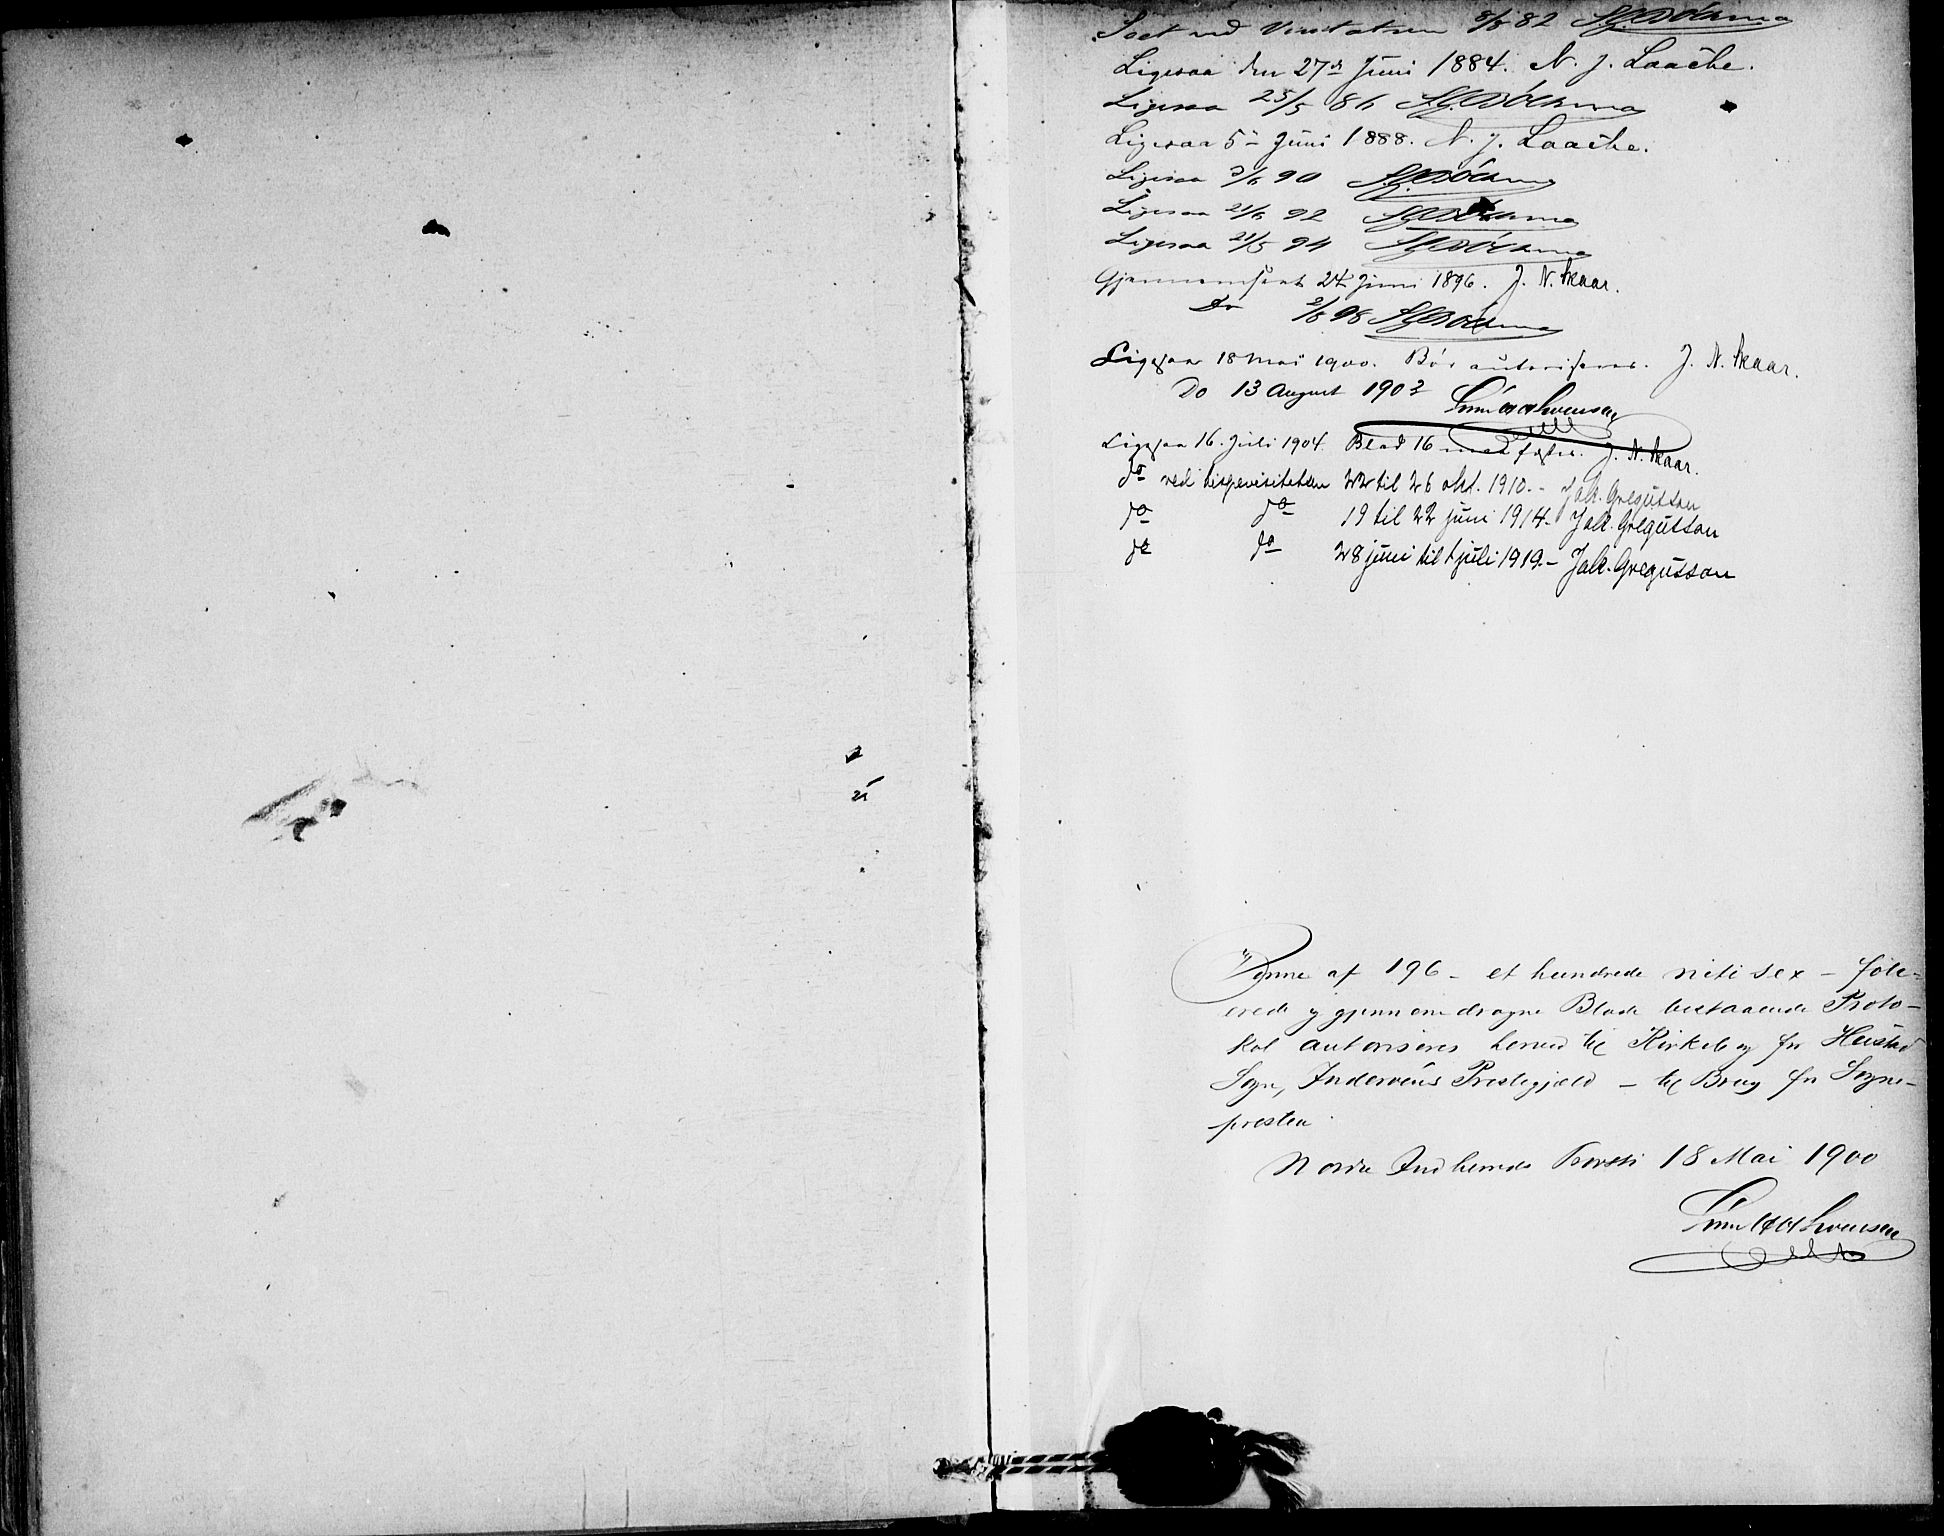 Seet ved Visitatsen 8/8 82
Ligesaa den 27de Juni 1884. N. J. Laache.
Ligesaa 25/5 86
Ligesaa 5- Juni 1888. N. J. Laache.
Ligesaa 3/6 90
Ligesaa 21/6 92
Ligesaa 21/5 94
Gjennemseet 24 Juni 1896. J. N. Skaar.
Do 98
Ligesaa 18 Mai 1900. Bør autoriseres. J. N. Skaar.
Do 13 August 1902
Ligesaa 16. Juli 1904. Blad 16 J. N. Skaar.
do ved bispevisitatsen 22 til 26 okt. 1910.- Jak. Gregusson
do do 19 til 22 juni 1914- Jak. Gregusson
do do 28 juni til 1 juli 1919.- Jak. Gregusson
Denne af 196 - et hundrede niti sex - folie-
rede og gjennemdragne Blade bestaaende Proto-
kol autoriseres herved til Kirkebog for Heustad
Sogn, Inderøens Prestegjæld - til Brug for Sogne-
presten
Nordre Indherreds Provsti 18 Mai 1900